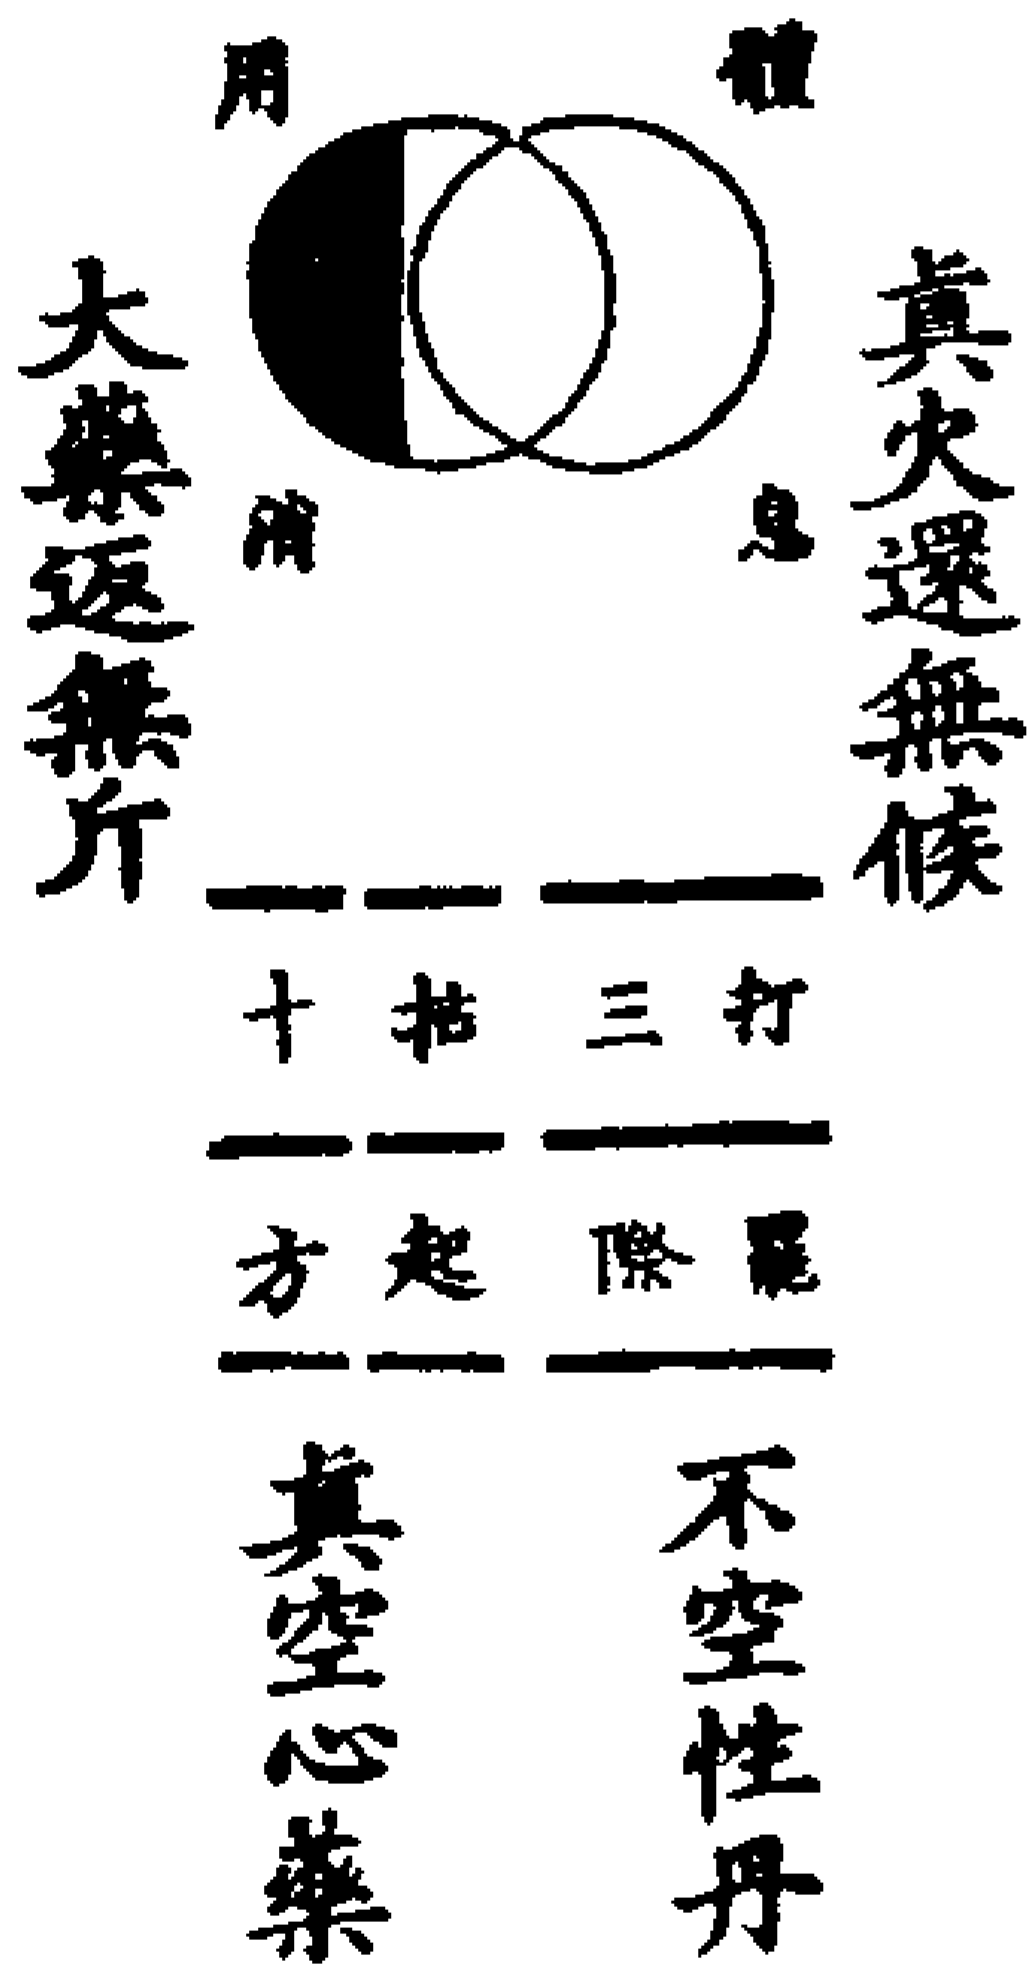 體
用
真火還無候
大藥返無斤
息
消
打罷
三際
拈起
十方
不空性丹
真空心藥